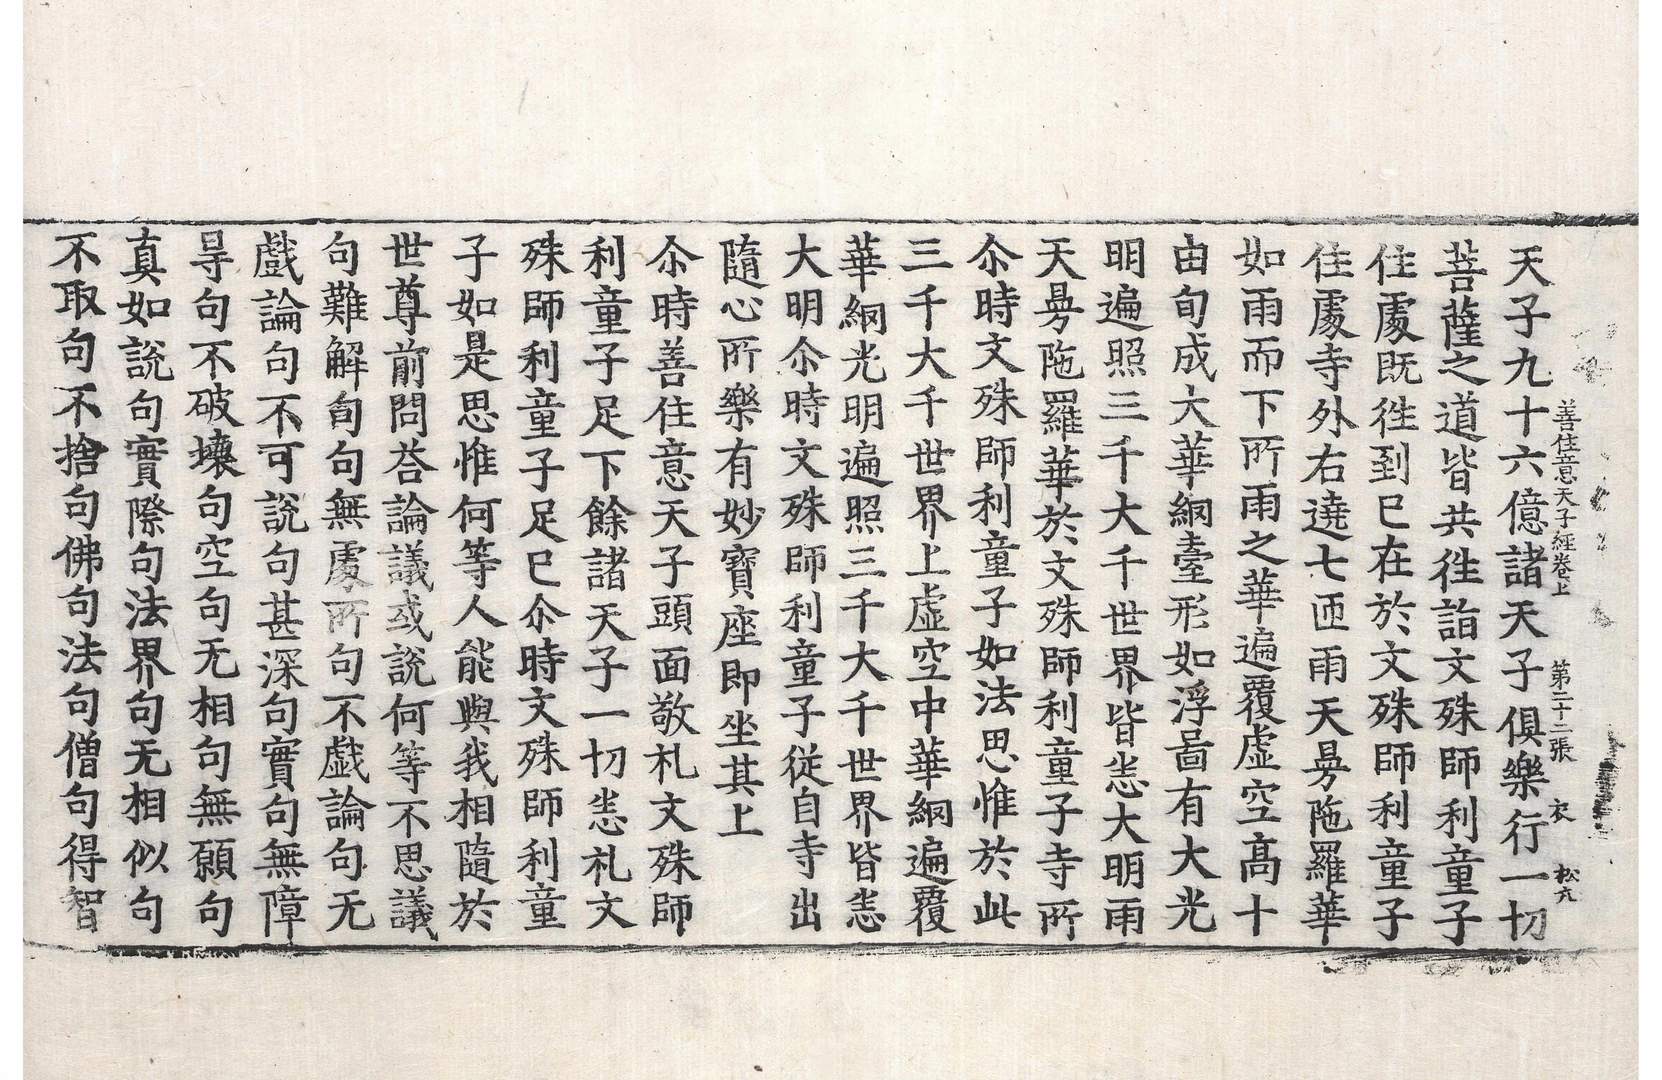 善住意天子經卷上 第二十二張 衣 松亢
天子九十六億諸天子俱樂行一切
菩薩之道皆共徃詣文殊師利童子
住處既徃到已在於文殊師利童子
住處寺外右遶七匝雨天曼陁羅華
如雨而下所雨之華遍覆虛空高十
由旬成大華網臺形如浮啚有大光
明遍照三千大千世界皆悉大明雨
天曼陁羅華於文殊師利童子寺所
尒時文殊師利童子如法思惟於此
三千大千世界上虛空中華網遍覆
華網光明遍照三千大千世界皆悉
大明尒時文殊師利童子從自寺出
隨心所樂有妙寶座即坐其上
尒時善住意天子頭面敬礼文殊師
利童子足下餘諸天子一切悉礼文
殊師利童子足已尒時文殊師利童
子如是思惟何等人能與我相隨於
世尊前問荅論議或說何等不思議
句難解句句無處所句不戱論句无
戱論句不可說句甚深句實句無障
㝵句不破壞句空句无相句無願句
真如說句實際句法界句无相似句
不取句不捨句佛句法句僧句得智